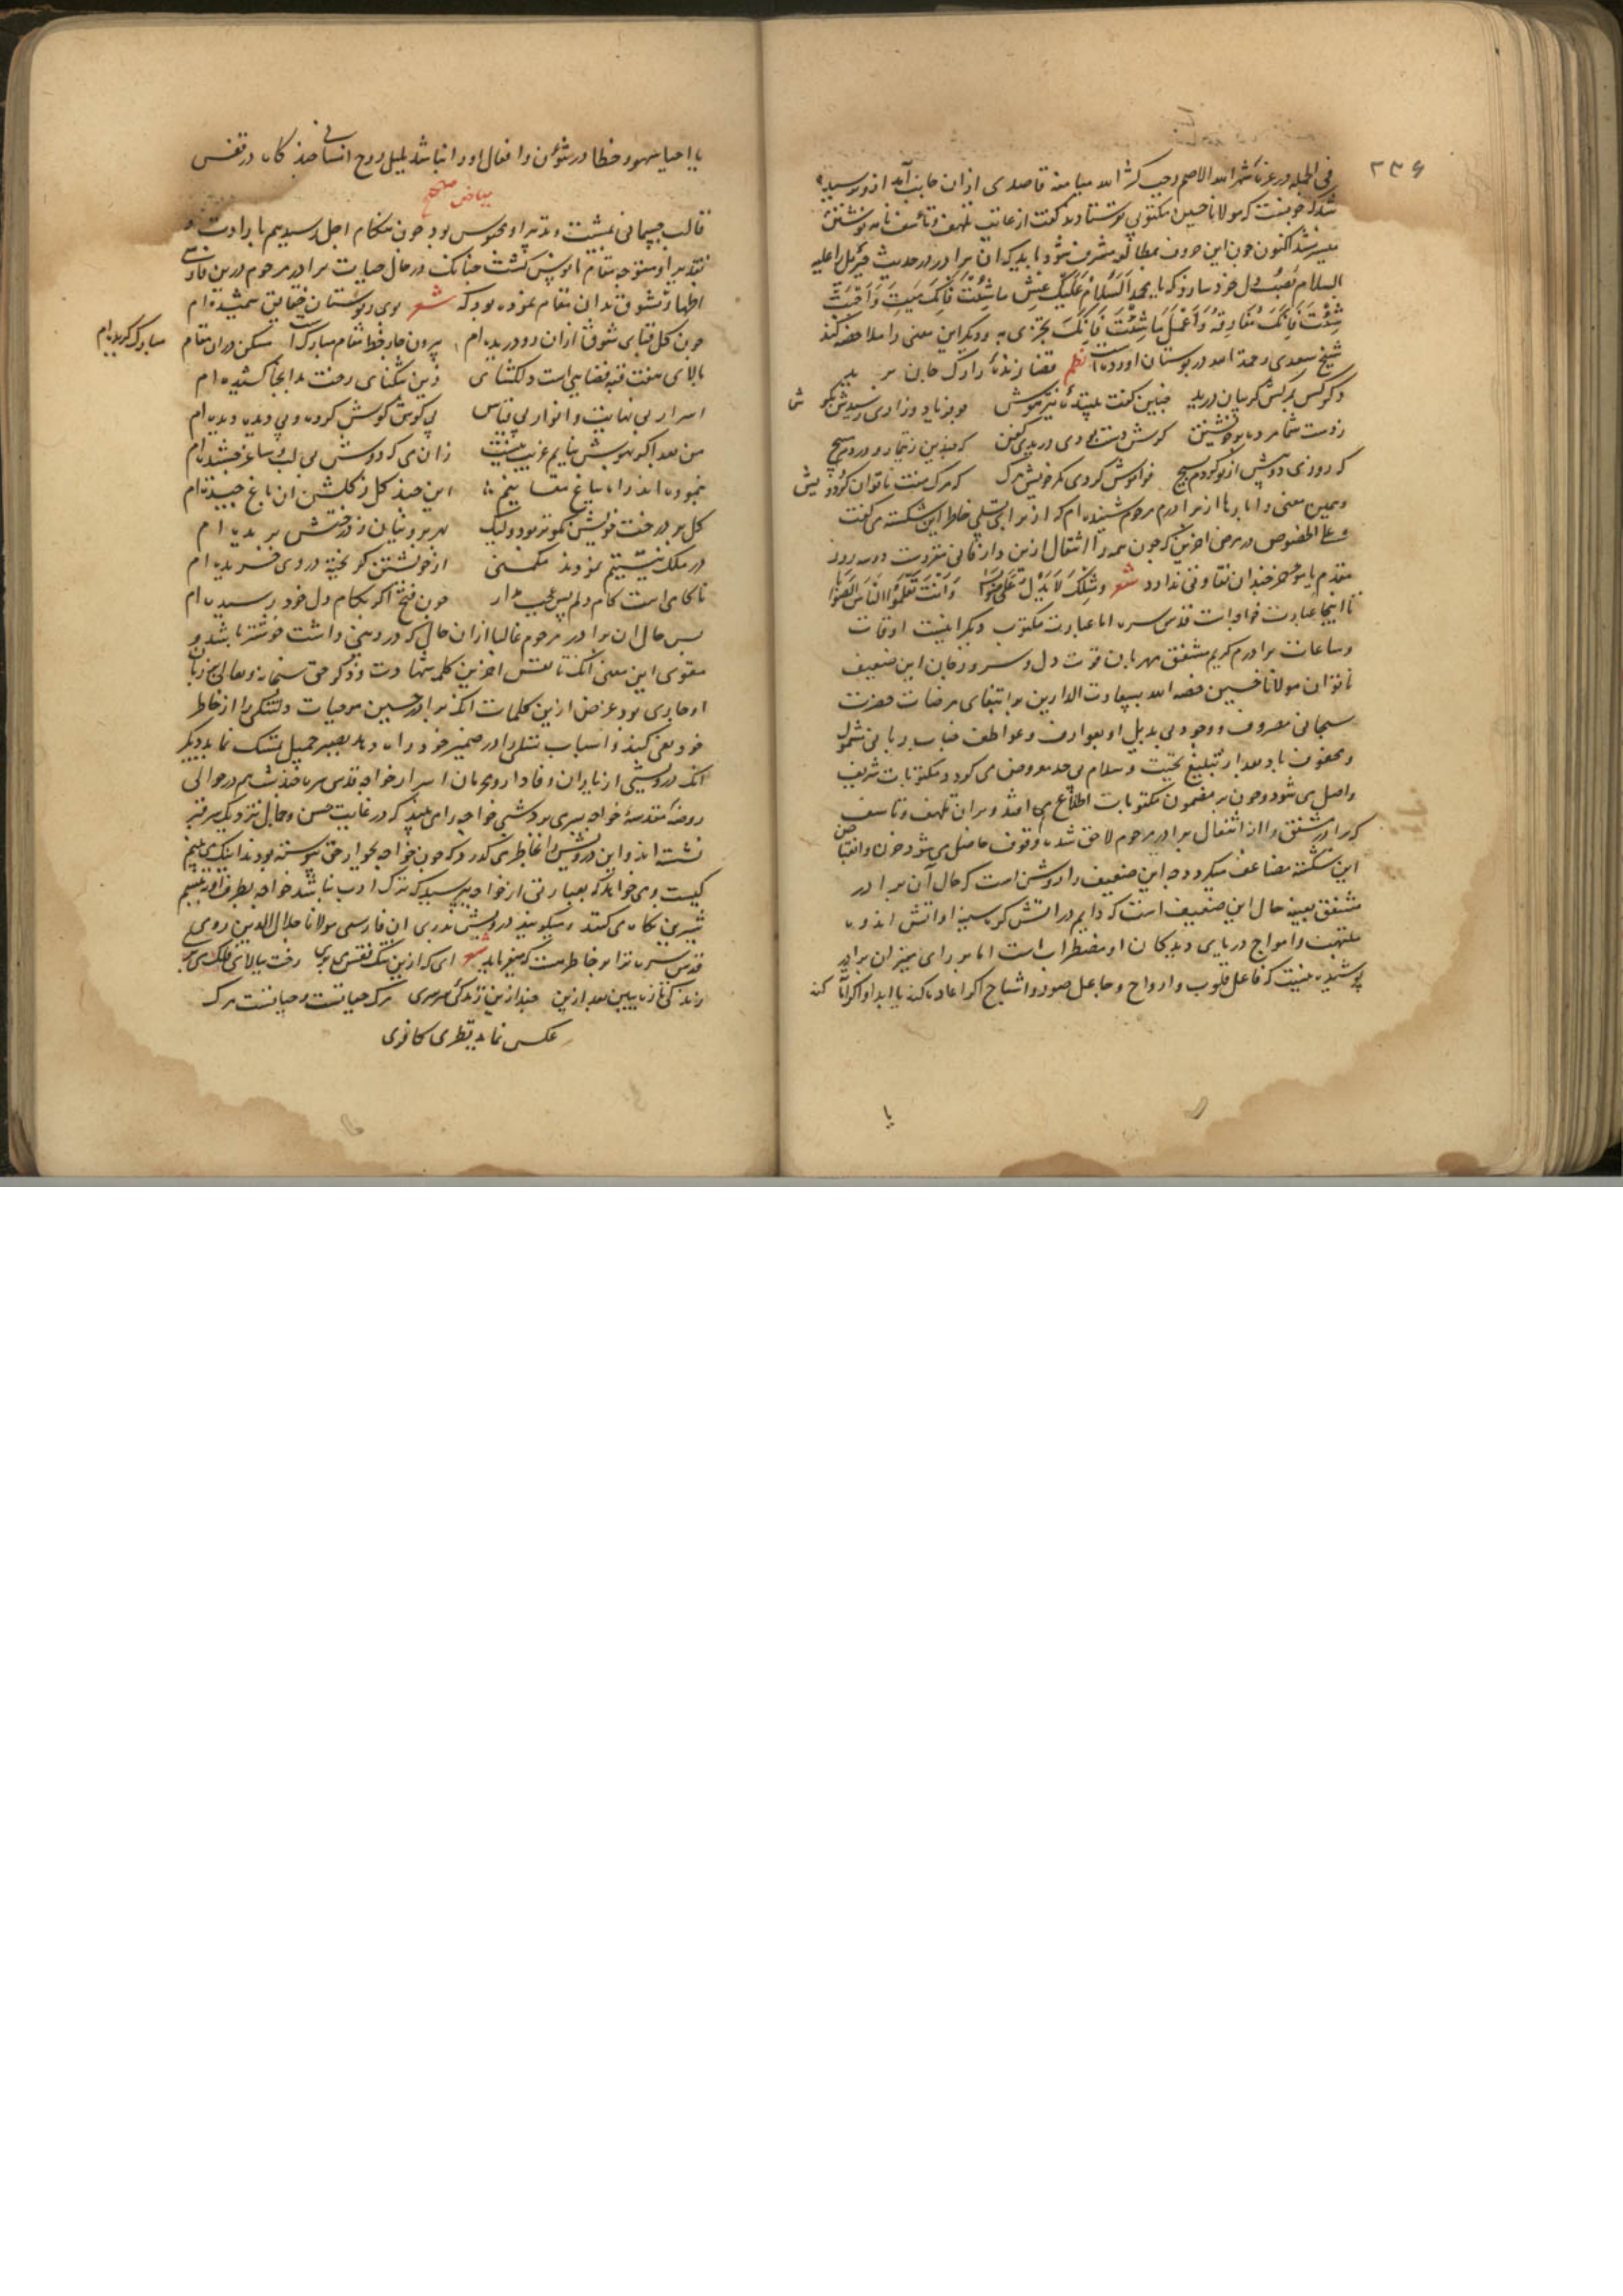 ۲۳۶
فی الجمله در غره شهر الله الاصم رجب کثر الله میامنه قاصدی ازان جانب آمد ازو پرسیده
شد که مولانا حسین مکتوبی نوشتاد گفت از غایت تلهف و تأسف نامه نوشتن
میسر نشد اکنون چون این حروف بمطالعه مشرف شود باید که ان برادر در حدیث جبرئیل علیه
السلام نصب دل خود سازد که یا محمد السلام علیک عش ما شئت فانک میت و احبب
شئت فانک مفارقه و اعمل ما شئت فانک تجزی به و دیگر این معنی را ملاحظه کند
شیخ سعدی رحمة الله در بوستان آورده است نظم قضا زندهٔ را رگ جان برید
دگر کس بمرگش گریبان درید چنین گفت بینندهٔ تیزهوش چو فریاد و زاری رسیدش بگوش
ز دست شما مرده بر خویشتن گرش دست بودی دریدی کفن که چندین ز تیمار و دردم مپیچ
که روزی دو پیش از تو کردم بسیج فراموش کردی مگر مرگ خویش که مرگ منت ناتوان کرد و ریش
و همین معنی را بارها از برادرم مرحوم شنیده ام که از برای تسلی خاطر این شکسته می گفت
و علی الخصوص در مرض اخرین که چون همه را انتقال ازین دار فانی مقررست دو سه روز
مقدم یا موخر چندان تفاوتی ندارد شعر
تا اینجا عبارت خواجه است قدس سره اما عبارت مکتوب دیگر اینست اوقات
و ساعات برادرم کریم مشفق مهربان قوت دل و سرور جان این ضعیف
ناتوان مولانا حسین خصه الله بسعادت الدارین بر ابتغای مرضات حضرت
سبحانی مصروف و وجود بی بدیل او بعوارف و عواطف جناب ربانی مشمول
و محفوف باد بعد از تبلیغ تحیت و سلام بی حد معروض می گردد مکتوبات شریف
واصل می شود و چون بر مضمون مکتوبات اطلاع می افتد و بران تلهف و تاسف
که برادر مشفق را از انتقال برادر مرحوم لاحق شده وقوف حاصل می شود حزن و انقباض
این شکسته مضاعف میگردد و این ضعیف را روشن است که حال آن برادر
مشفق بعینه حال این ضعیف است که دایم در اتش کوره سینه او اتش اندوه
ملتهب و امواج دریای دیدگان او مضطرب است اما بر رای منیر ان برادر
پوشیده نیست که فاعل قلوب و ارواح و جاعل صور و اشباح اگر اعاده کند یا ابدا و اگر اماته کند
یا
یا احیا سهو و خطا در شؤن و افعال او را نباشد بلبل روح انسانی چند گاه در قفس
بیاض صحیح
قالب جسمانی بمشیت و تدبیر او محبوس بود چون هنگام اجل رسیدیم بارادت و
تقدیر او متوجه مقام مانوس گشت چنانک در حال حیات برادر مرحوم درین
اظهار تشوق بدان مقام نموده بود که شعر بوی ز بوستان حقایق شمیده ام
چون گل قبای شوق ازان رو دریده ام بیرون چار خط مقام مبارک است مسکن دران مقام مبارک گزیده ام
بالای هفت قبه فضایی است دلگشای زین تنگنای رخت بدانجا کشیده ام
اسرار بی نهایت و انوار بی قیاس بی گوش گوش کرده و بی دیده دیده ام
من بعد اگر بهوش نیایم غریب نیست زان می که دوش بی لب و ساغر چشیده ام
بنموده اند راه بباغ معانیم این چند گل ز گلشن ان باغ چیده ام
گل بر درخت خویش نکوتر بود ولیک بهر بروتیان ز درختش بریده ام
در ملک نیستیم نمودند مکمنی از خویشتن گریخته در وی خزیده ام
ناکامی است کام دلم پس عجب مدار چون فتح اگر بکام دل خود رسیده ام
پس حال ان برادر مرحوم غالبا ازان حال که در دنیی داشت خوشتر باشد و
مقوی این معنی آنک تا نفس اخرین کلمه شهادت و ذکر حق سبحانه و تعالی بر زبان
او جاری بود غرض ازین کلمات انک برادر حسین موجبات دلتنگی را از خاطر
خود نفی کند و اسباب تسلی را در ضمیر خود راه دهد بصبر جمیل تمسک نماید دیگر
انک درویشی از یاران وفادار و محرمان اسرار خواجه قدس سره در حوالی
روضهٔ مقدسهٔ خواجه بسری برد شبی خواجه را می بیند که در غایت حسن و جمال نزدیک سر قبر
نشسته اند و این درویش را بخاطر می گذرد که چون خواجه بجوار حق پیوسته بودند اینک می بینم
کیست و می خواهد که بعبارتی از خواجه پرسد که ترک ادب نباشد خواجه بطرف او بتبسم
شیرین نگاه می کند و میگوید درویش ندیدی ان فارسی مولانا جلال الدین رومی
قدس سره ترا بر خاطر هست که میفرماید شعر ای که ازین تنگ قفس می پری رخت ببالای فلک می بری
زندگی تازه ببین بعد ازین چند ازین زندگی سرسری مرگ حیاتست و حیاتست مرگ
عکس نماید نظر کافری